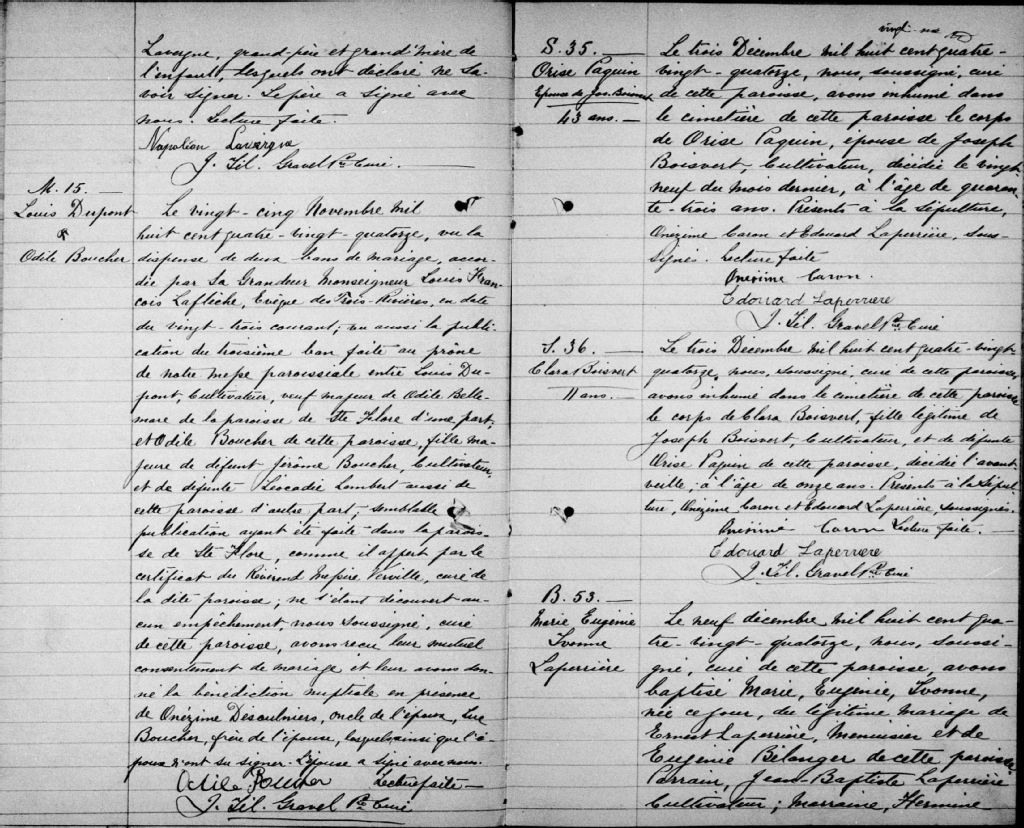 Lavergne, grand-père et grand'mère de
l'enfant, lesquels ont déclaré ne sa-
voir signer. Le père a signé avec
nous. Lecture faite.
Napoléon Lavergne
J. Fél. Gravel Ptre Curé.
M. 15. —
Louis Dupont
&
Odile Boucher
Le vingt-cinq Novembre mil
huit cent quatre-vingt-quatorze, vu la
dispense de deux bans de mariage, accor-
dée par Sa Grandeur Monseigneur Louis Fran
çois Laflèche, Evêque des Trois-Rivières, en date
du vingt-trois courant; vu aussi la publi-
cation du troisième ban faite au prône
de notre messe paroissiale entre Louis Du-
pont, Cultivateur, veuf majeur de Odile Belle-
mare de la paroisse de Ste Flore d'une part;
et Odile Boucher de cette paroisse, fille ma-
jeure de défunt Jérôme Boucher, Cultivateur,
et de défunte Léocadie Lambert aussi de
cette paroisse d'autre part; semblable
publication ayant été faite dans la parois-
se de Ste Flore, comme il appert par le
certificat du Révérend Messire Verville, curé de
la dite paroisse; ne s'étant découvert au-
cun empêchement, nous soussigné, curé
de cette paroisse, avons reçu leur mutuel
consentement de mariage et leur avons don-
né la bénédiction nuptiale en présence
de Onézime Desaulniers, oncle de l'époux, Luc
Boucher, frère de l'épouse, lesquels, ainsi que l'é-
poux n'ont su signer. L'épouse a signé avec nous.
Odile Boucher Lecture faite —
J. Fél. Gravel Ptre Curé
S. 35. —
Orise Paquin
Epouse de Jos. Boisvert
43 ans. —
vingt-
Le trois Décembre mil huit cent quatre-
vingt-quatorze, nous, soussigné, curé
de cette paroisse, avons inhumé dans
le cimetière de cette paroisse le corps
de Orise Paquin, épouse de Joseph
Boisvert, Cultivateur, décédée le vingt-
neuf du mois dernier, à l'âge de quaran
te-trois ans. Présents à la sépulture,
Onézime Caron et Edouard Laperrière, sous-
signés. Lecture faite
Onésime Caron.
Edouard Laperriere
J. Fél. Gravel Ptre Curé
S. 36. —
Clara Boisvert
11 ans. —
Le trois Décembre mil huit cent quatre-vingt
quatorze, nous, soussigné, curé de cette paroisse,
avons inhumé dans le cimetière de cette paroisse
le corps de Clara Boisvert, fille légitime de
Joseph Boisvert, Cultivateur, et de défunte
Orise Paquin de cette paroisse, décédée l'avant
veille, à l'âge de onze ans. Présents à la Sépul-
ture, Onézime Caron et Edouard Laperrière, soussignés.
Onésime Caron Lecture faite. —
Edouard Laperriere
J. Fél. Gravel Ptre Curé
B. 53. —
Marie Eugénie
Ivonne
Laperrière
Le neuf décembre mil huit cent qua
tre-vingt-quatorze, nous, soussi-
gné, curé de cette paroisse, avons
baptisé Marie, Eugénie, Ivonne,
née ce jour, du légitime mariage de
Ernest Laperrière, Menuisier et de
Eugénie Bélanger de cette paroisse.
Parrain, Jean-Baptiste Laperrière
Cultivateur; Marraine, Hermine